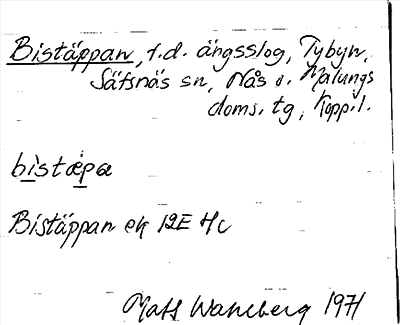 Bistäppan, f.d. ängsslog, Tybyn,
Säfsnäs sn, Nås o. Malungs
doms. tg, Kopp. l.
bistæpa
Bistäppan ek 12E 4c
Mats Wahlberg 1971